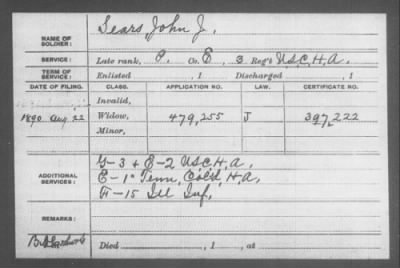 NAME OF SOLDIER: Sears John J.
SERVICE: Late rank, P. Co. E, 3 Reg't U.S.C.H.A.
TERM OF SERVICE: Enlisted , 1 Discharged , 1
DATE OF FILING. CLASS. APPLICATION NO. LAW. CERTIFICATE NO.
Invalid,
1890 Aug 22 Widow, 479,255 J 397,222
Minor,
ADDITIONAL SERVICES: G-3 + E-2 U.S.C.H.A.
E-1" Tenn, Col'd, H.A,
F-15 Ill Inf,
REMARKS:
Died , 1 , at